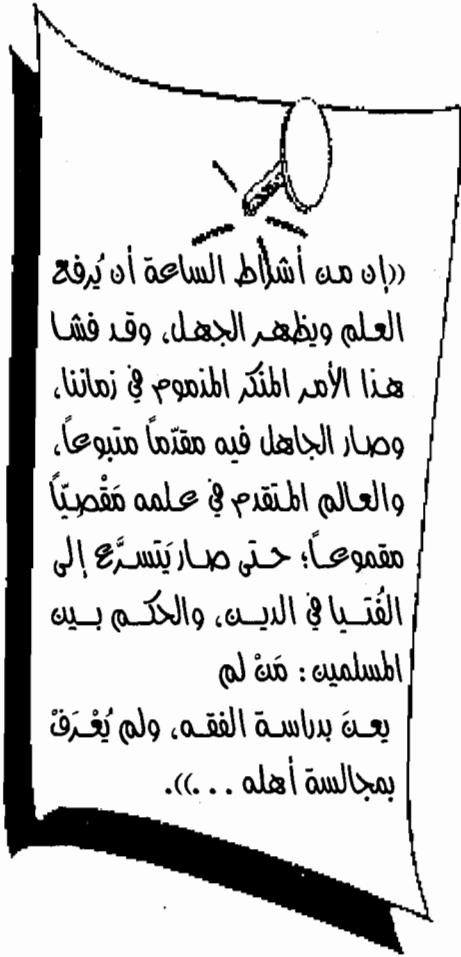 ((إن من أشراط الساعة أن يُرفع
العلم ويظهر الجهل، وقد فشا
هذا الأمر المنكر المذموم في زماننا،
وصار الجاهل فيه مقدّماً متبوعاً،
والعالم المتقدم في علمه مَقْصِيّاً
مقموعاً؛ حتى صار يَتسرَّع إلى
الفُتيا في الدين، والحكم بين
المسلمين : مَنْ لم
يعنَ بدراسة الفقه، ولم يُعْرَفْ
بمجالسة أهله . . .)).